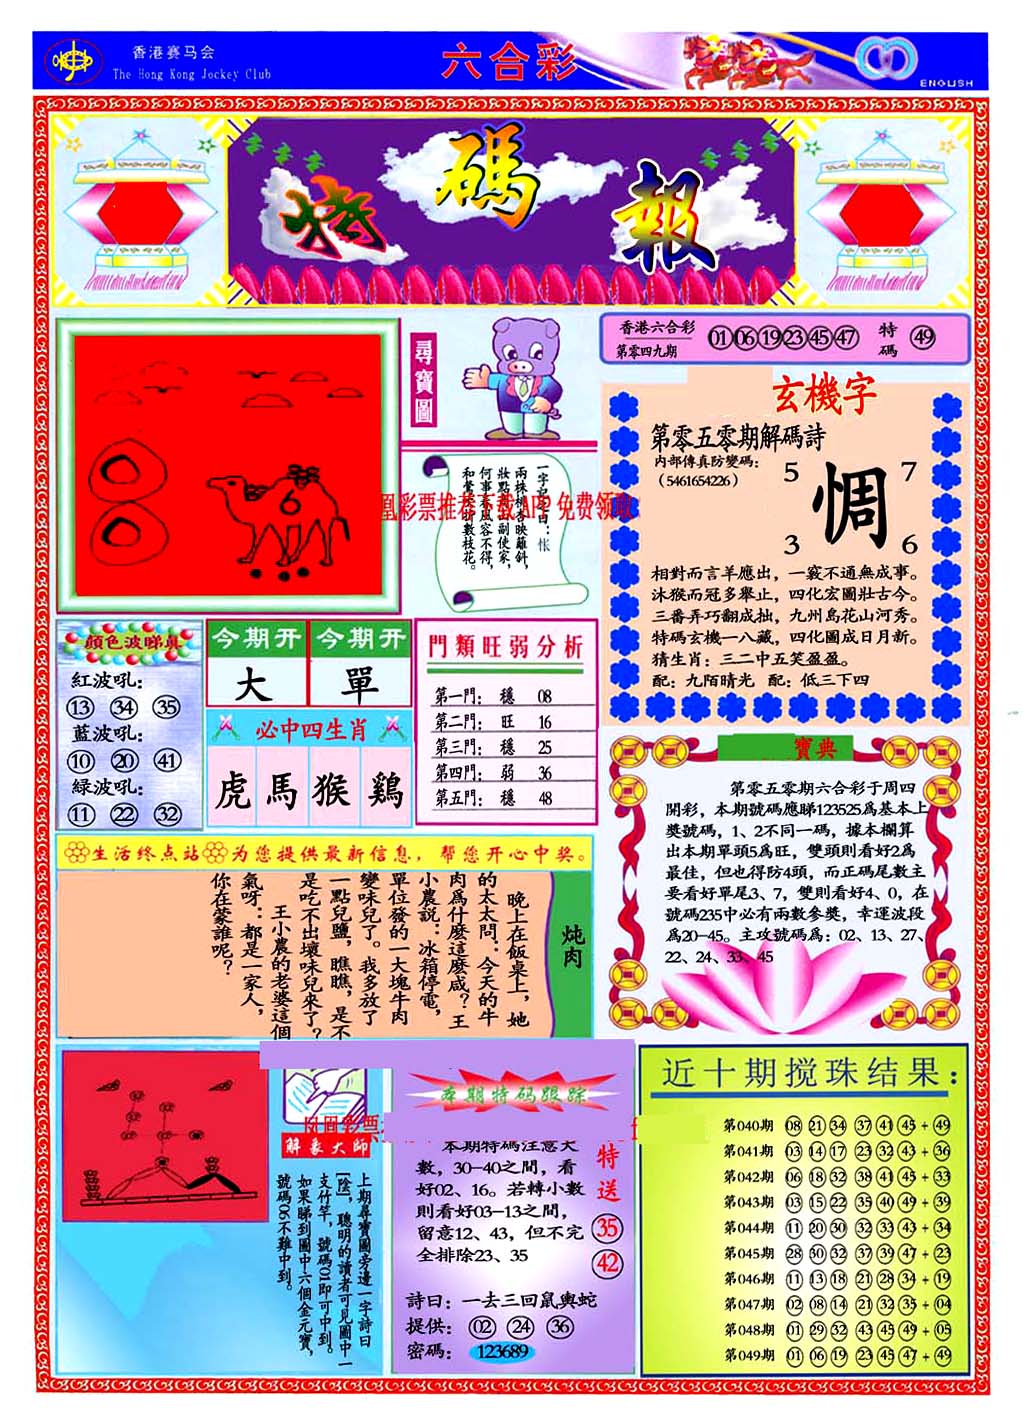 香港赛马会
The Hong Kong Jockey Club
六合彩
ENGLISH
特碼報
尋寶圖
6
一字記之曰：悵
兩株桃杏映籬斜，
妝點商山副使家，
何事春風容不得，
和鶯吹折數枝花。
香港六合彩
第零四九期
01 06 19 23 45 47
特碼
49
玄機字
第零五零期解碼詩
内部傳真防變碼：
（5461654226）
5 7
惆
3 6
相對而言羊應出，一竅不通無成事。
沐猴而冠多舉止，四化宏圖壯古今。
三番弄巧翻成拙，九州鳥花山河秀。
特碼玄機一八藏，四化圖成日月新。
猜生肖：三二中五笑盈盈。
配：九陌晴光 配：低三下四
顔色波睇真
紅波吼：
13 34 35
藍波吼：
10 20 41
緑波吼：
11 22 32
今期开
大
今期开
單
必中四生肖
虎 馬 猴 鷄
門類旺弱分析
第一門： 穩 08
第二門： 旺 16
第三門： 穩 25
第四門： 弱 36
第五門： 穩 48
寶典
第零五零期六合彩于周四
開彩，本期號碼應睇123525爲基本上
獎號碼，1、2不同一碼，據本欄算
出本期單頭5爲旺，雙頭則看好2爲
最佳，但也得防4頭，而正碼尾數主
要看好單尾3、7，雙則看好4、0，在
號碼235中必有兩數參獎，幸運波段
爲20-45。主攻號碼爲：02、13、27、
22、24、33、45
生活终点站 为您提供最新信息，帮您开心中奖。
炖肉
晚上在飯桌上，她
的太太問：今天的牛
肉爲什麼這麼咸？王
小農説：冰箱停電，
單位發的一大塊牛肉
變味兒了。我多放了
一點兒鹽，瞧瞧，是不
是吃不出壞味兒來了？
王小農的老婆這個
氣呀：都是一家人，
你在蒙誰呢？
解象大師
上期尋寶圖旁邊一字詩曰
[陰]，聰明的讀者可見圖中一
支竹竿，號碼01即可中到。
如果睇到圖中六個金元寶，
號碼06不難中到。
本期特码跟踪
本期特碼注意大
數，30-40之間，看
好02、16。若轉小數
則看好03-13之間，
留意12、43，但不完
全排除23、35
特送
35
42
詩曰：一去三回鼠輿蛇
提供： 02 24 36
密碼： 123689
近十期搅珠结果：
第040期 08 21 34 37 41 45 + 49
第041期 03 14 17 23 32 43 + 36
第042期 06 18 32 38 41 45 + 33
第043期 03 15 22 35 40 49 + 39
第044期 11 20 30 32 33 43 + 34
第045期 28 30 32 37 39 47 + 23
第046期 11 13 18 21 28 34 + 19
第047期 02 08 14 21 32 35 + 04
第048期 01 29 32 43 45 49 + 05
第049期 01 06 19 23 45 47 + 49